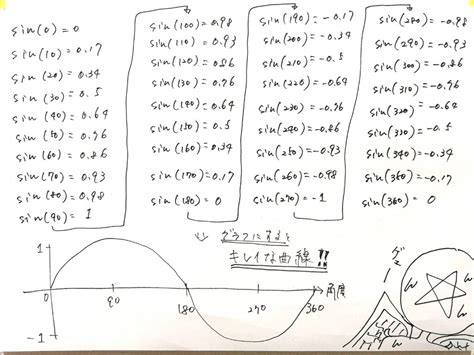 sin(0)=0
sin(10)=0.17
sin(20)=0.34
sin(30)=0.5
sin(40)=0.64
sin(50)=0.76
sin(60)=0.86
sin(70)=0.93
sin(80)=0.98
sin(90)=1
sin(100)=0.98
sin(110)=0.93
sin(120)=0.86
sin(130)=0.76
sin(140)=0.64
sin(150)=0.5
sin(160)=0.34
sin(170)=0.17
sin(180)=0
sin(190)=-0.17
sin(200)=-0.34
sin(210)=-0.5
sin(220)=-0.64
sin(230)=-0.76
sin(240)=-0.86
sin(250)=-0.93
sin(260)=-0.98
sin(270)=-1
sin(280)=-0.98
sin(290)=-0.93
sin(300)=-0.86
sin(310)=-0.76
sin(320)=-0.64
sin(320)=-0.5
sin(340)=-0.34
sin(360)=-0.17
sin(360)=0
グラフにすると
キレイな曲線!!
1
0
90
180
270
360
角度
-1